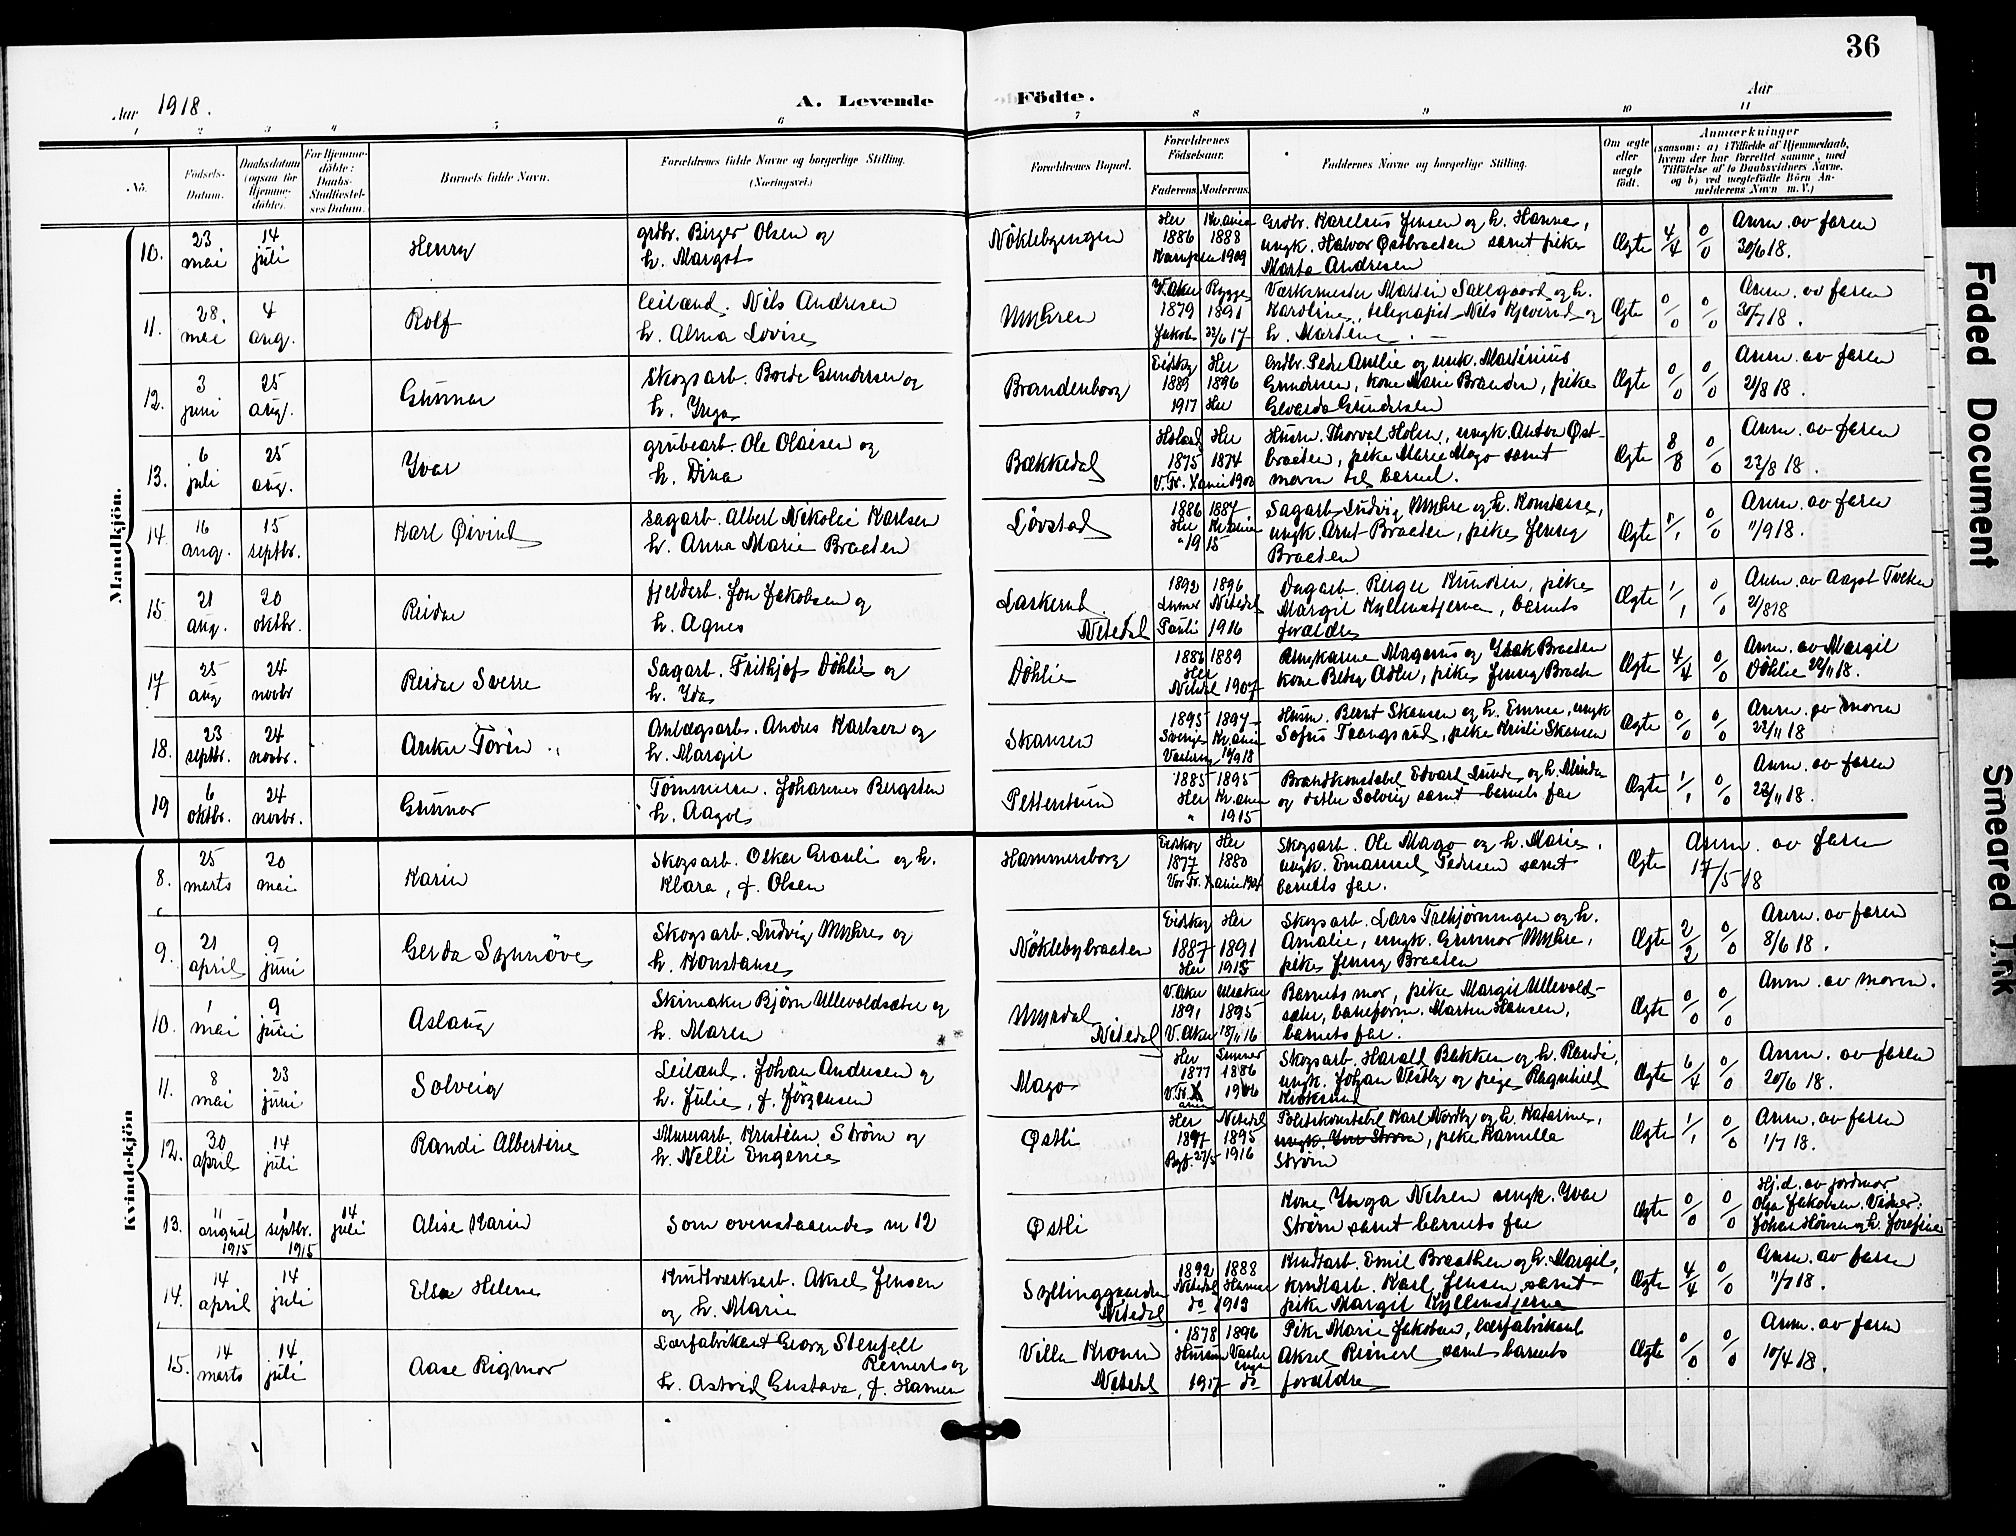 36
Aar 1918.
A. Levende Födte.
Aar
1 2 3 4 5 6 7 8 9 10 11
No.
Födsels-Datum.
Daabsdatum (ogsaa for Hjemme-döbte).
For Hjemme-döbte: Daabs-Stadfæstel-ses Datum.
Barnets fulde Navn.
Forældrenes fulde Navne og borgerlige Stilling. (Næringsvei.)
Forældrenes Bopæl.
Forældrenes Födselsaar.
Faderens. Moderens.
Faddernes Navne og borgerlige Stilling.
Om ægte eller uægte födt.
Anmærkninger
(saasom: a) i Tilfælde af Hjemmedaab, hvem der har forrettet samme, med Tilföielse af to Daabsvidners Navne, og b) ved uægtefödte Börn Anmelderens Navn m. V.)
Mandkjön.
10. 23 mai 14 juli Henry grdbr. Birger Olsen og h. Margot Nöklebyengen Her 1886 Kr.ania 1888 Kampen 1909 Grdbr. Karelius Jensen og h. Hanna, ungk. Halvor Østbraaten samt pike Marta Andresen Ægte 4/4 0/0 Anm. av faren 30/6 18.
11. 28 mai 4 aug. Rolf leilænd. Nils Andresen h. Alma Lovise Myhren V. Aker 1879 Rygge 1891 Jakob 22/6 17 Værksmester Martin Saxegaard og h. Karoline, telegrafist Nils Kjeverud og h. Martine Ægte 0/0 0/0 Anm. av faren 30/7 18.
12. 3 juni 25 aug. Gunnar Skogsarb. Brede Gundersen og h. Inga Brandenborg Eidskog 1889 Her 1896 1917 Her Grdbr. Peder Amlie og ungk. Martinius Gundersen, kone Marie Braaten, pike Gundersen Ægte 0/0 0/0 Anm. av faren 21/8 18.
13. 6 juli 25 aug. Yvar grubearb. Ole Olaisen og h. Dina Bækkedal Høland 1875 Her 1874 V. Fr. X ania 1900 Husm. Thorval Holm, ungk. Anton Østbraaten, pike Marie Mago samt moren til barnet. Ægte 8/8 0/0 Anm. av faren 22/8 18.
14. 16 aug. 15 septbr. Karl Øivind Sagarb. Albert Nikolai Karlsen h. Anna Marie Braaten Lövstad 1886 1887 Her Kr.ania " 1915 Sagarb. Ludvig Myhre og h. Konstanse, ungk. Arnt Braaten, pike Jenny Braaten Ægte 1/1 0/0 Anm. av faren 11/9 18.
15. 21 aug. 20 oktbr. Reidar Jon Jakobsen og h. Agnes Laskerud Nitedal 1892 1896 Lunner Nitedal Pauli 1916 Dagarb. Birger Knudsen, pike Margit Kyllenstjerna, barnets forældre Ægte 1/1 0/0 Anm. av Aagot Tveten 21/8 18
17 25 aug 24 novbr Reidar Sverre Sagarb. Frithjof Döhlie og h. Ida Döhlie 1886 1889 Her Nitedal 1907 Ungkarene Magnus og Isak Braaten kone Betsy Adler, pike Jenny Braaten Ægte 4/4 0/0 Anm. av Margit Döhlie 22/11 18.
18. 23 septbr. 24 novbr. Anker Torin Anlægsarb. Andres Karlsen og h. Margit Skansen 1895 1897 Sverige Kr.ania 14/9 18 Husm. Bernt Skansen og h. Emma, ungk Sofus Trangsrud, pike Kristi Skansen Ægte 0/0 0/0 Anm. av moren 22/11 18
19 6 oktbr. 24 novbr. Gunnar Tömmerm. Johannes Bergsten h. Aagot Petterstuen 1885 1895 Her Kr.ania " 1915 Brandkonstabel Edvart Lunde og h. Minda og datter Solveig samt barnets far Ægte 1/1 0/0 Anm. av faren 22/11 18.
Kvindekjön
8. 25 marts 20 mai Karin Skogsarb. Oskar Granli og h. Klara, f. Olsen Hammersborg Eidskog 1877 Her 1880 Vor Fr. X ania 1904 Skogsarb. Ole Mago og h. Marie, ungk. Emanuel Pedersen samt barnets far. Ægte Anm. av faren 17/5 18
9. 21 april 9 juni Gerda Synnöve Skogsarb. Ludvig Myhre og h. Konstanse Nöklebybraaten Eidskog 1887 Her 1891 Her 1915 Skogsarb. Lars Trehjörningen og h. Amalie, ungk. Gunnar Myhre, pike Jenny Braaten Ægte 2/2 0/0 Anm. av faren 8/6 18.
10. 1 mai 9 juni Aslaug Skimaker Bjørn Ullevoldsæter og h. Maren Nitedal V. Aker 1891 Ulsaker 1895 V. Aker 18/11 16 Barnets mor, pike Margit Ullevoldsæter, baneform. Marten Hansen, barnets far. Ægte 0/0 0/0 Anm. av moren.
11. 8 mai 23 juni Solveig Leilænd. Johan Andresen og h. Julie, f. Jörgensen Mago Her 1877 Lunner 1886 V. Fr. X ania 1906 Skogsarb. Harald Bakken og h. Randi, ungk. Johan Vestby og pige Ragnhild Kroksrud Ægte 6/4 0/0 Anm. av faren 20/6 18.
12. 30 april 14 juli Randi Albertine Murerarb. Kristian Ström og h. Nelli Eugenie Østli Her 1897 Nitedal 1895 Bygf. 27/5 1916 Politikonstabel Karl Nordby og h. Katarine, ungk. Yvar Ström, pike Kamilla Ström Ægte 1/1 0/0 Anm. av faren 1/7 18.
13. 11 august 1915 1 septbr. 1915 14 juli Alise Karin Som ovenstaaende nr 12 Østli Kone Ynga Nilsen ungk. Yvar Ström samt barnets far Ægte 0/0 0/0 Hj.d. av jordmor Olga Jakobsen. Vidner: Johan Hansen og h. Josefine
14. 14 april 14 juli Elsa Helene Krudtverksarb. Aksel Jensen og h. Marie Syllinggaarden Nitedal 1892 1888 Nitedal Hamar do 1913 Krudtarb. Emil Braathen og h. Margit, krudtarb. Karl Jensen samt pike Margit Kyllenstjerna Ægte 4/4 0/0 Anm. av faren 11/7 18.
15. 14 marts 14 juli Aase Rigmor Lærfabrikant Georg Stenfelt Reinert og h. Astrid Gustava, f. Hansen Villa Kroun Nitedal 1878 1896 Hurum 1917 do Pike Marie Jakobsen, lærfabrikant Aksel Reinert samt barnets forældre Ægte 0/0 0/0 Anm. av faren 10/4 18.
Faded Document
Smeared Ink